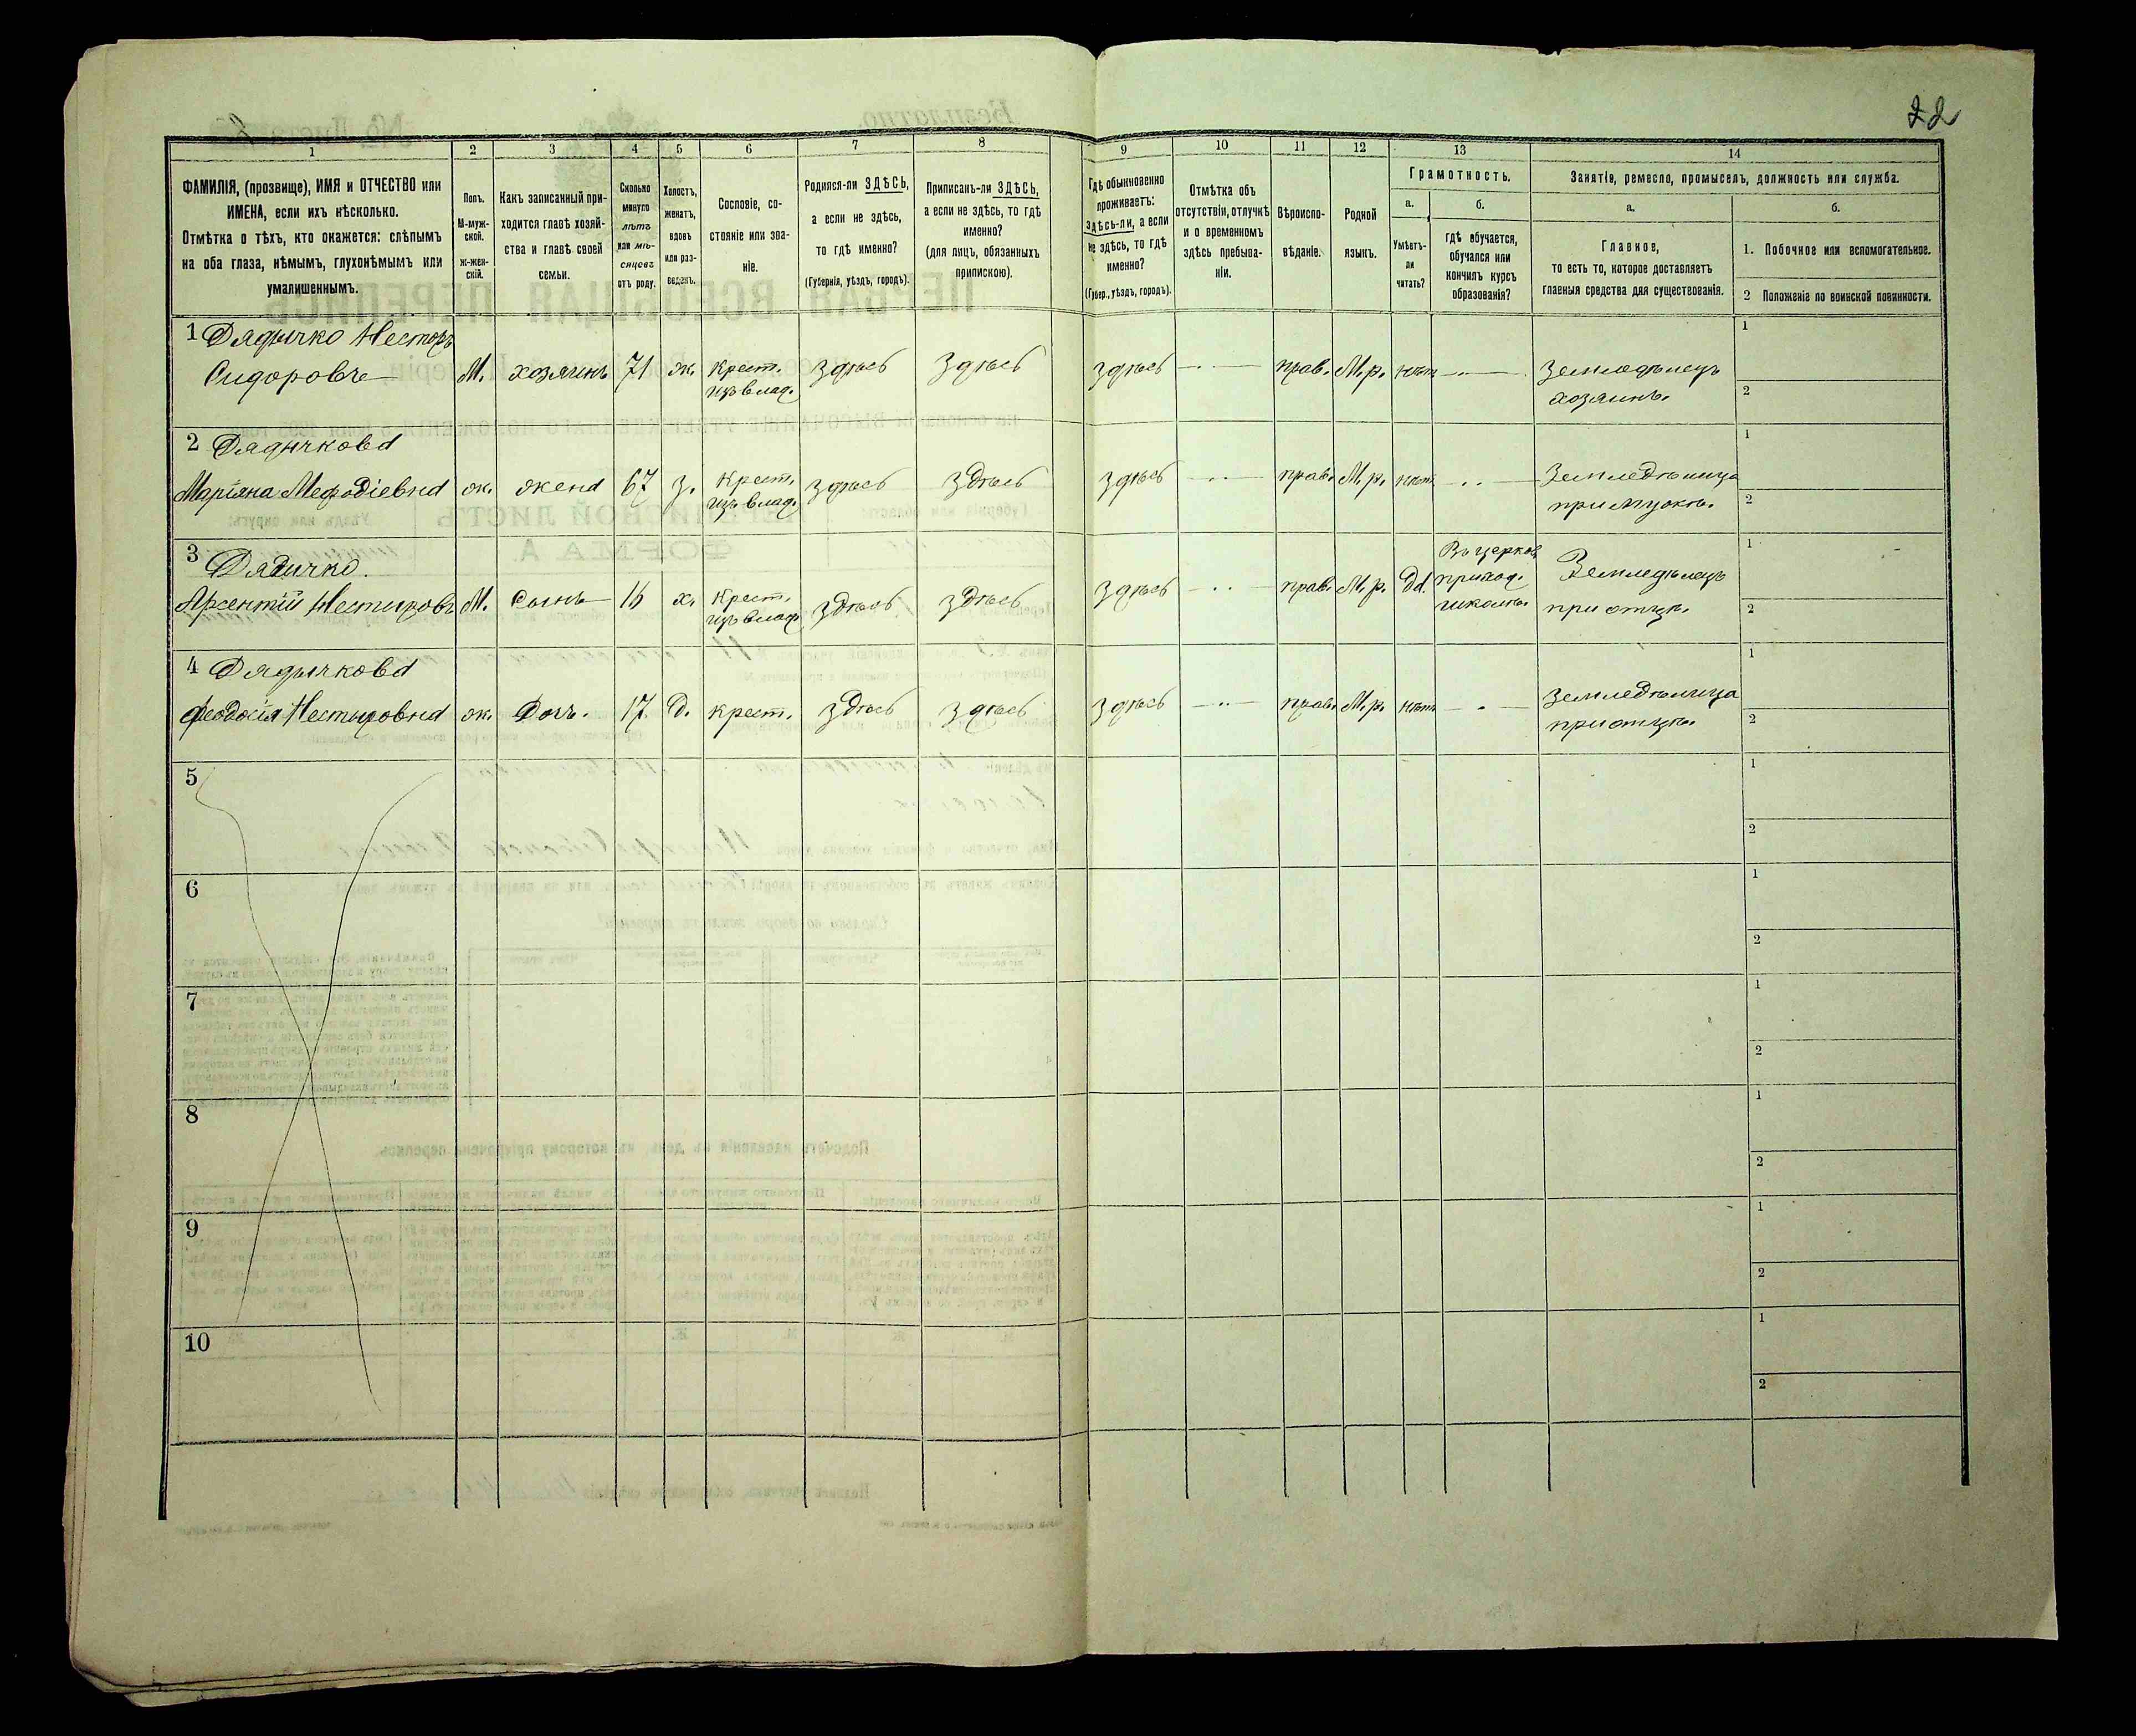 22
1 2 3 4 5 6 7 8 9 10 11 12 13 14
ФАМИЛІЯ, (прозвище), ИМЯ и ОТЧЕСТВО или
ИМЕНА, если ихъ нѣсколько.
Отмѣтка о тѣхъ, кто окажется: слѣпымъ
на оба глаза, нѣмымъ, глухонѣмымъ или
умалишеннымъ.
Полъ.
М-муж-
ской.
ж-жен-
скій.
Какъ записанный при-
ходится главѣ хозяй-
ства и главѣ своей
семьи.
Сколько
минуло
лѣтъ
или мѣ-
сяцевъ
отъ роду.
Холостъ,
женатъ,
вдовъ
или раз-
веденъ.
Сословіе, со-
стояніе или зва-
ніе.
Родился-ли ЗДѢСЬ,
а если не здѣсь,
то гдѣ именно?
(Губернія, уѣздъ, городъ).
Приписанъ-ли ЗДѢСЬ,
а если не здѣсь, то гдѣ
именно?
(для лицъ, обязанныхъ
припискою).
Гдѣ обыкновенно
проживаетъ:
здѣсь-ли, а если
не здѣсь, то гдѣ
именно?
(Губер., уѣздъ, городъ).
Отмѣтка объ
отсутствіи, отлучкѣ
и о временномъ
здѣсь пребыва-
ніи.
Вѣроиспо-
вѣданіе.
Родной
языкъ.
Грамотность.
а.
Умѣетъ-
ли
читать?
б.
гдѣ обучается,
обучался или
кончилъ курсъ
образованія?
Занятіе, ремесло, промыселъ, должность или служба.
а.
Главное,
то есть то, которое доставляетъ
главныя средства для существованія.
б.
1. Побочное или вспомогательное.
2 Положеніе по воинской повинности.
1 Дядычко Несторъ
Сидоровъ М. хозяинъ 71 ж. Крест. здѣсь здѣсь здѣсь прав. М.р. нѣтъ Земледѣлецъ
изъ влад. хозяинъ.
1
2
2 Дядычкова
Маріяна Мефодіевна ж. жена 67 з. Крест. здѣсь здѣсь здѣсь прав. М.р. нѣтъ Земледѣлица
изъ влад. при мужѣ.
1
2
3 Дядичко. Въ церков.
Арсентій Нестыровъ М. Сынъ 16 х. Крест. здѣсь здѣсь здѣсь прав. М.р. да. приход. Земледѣлецъ
изъ влад. школѣ. при отцѣ.
1
2
4 Дядычкова
Феодосія Нестыровна ж. Дочь. 17. Д. крест. здѣсь здѣсь здѣсь прав. М.р. нѣтъ Земледѣлица
при отцѣ.
1
2
5
1
2
6
1
2
7
1
2
8
1
2
9
1
2
10
1
2